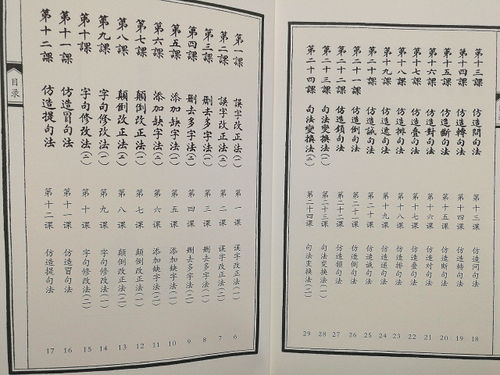 目录
第一課 誤字改正法(一) 第一课 误字改正法(一) 6
第二課 誤字改正法(二) 第二课 误字改正法(二) 7
第三課 刪去多字法(一) 第三课 删去多字法(一) 8
第四課 刪去多字法(二) 第四课 删去多字法(二) 9
第五課 添加缺字法(一) 第五课 添加缺字法(一) 10
第六課 添加缺字法(二) 第六课 添加缺字法(二) 11
第七課 顛倒改正法(一) 第七课 颠倒改正法(一) 12
第八課 顛倒改正法(二) 第八课 颠倒改正法(二) 13
第九課 字句修改法(一) 第九课 字句修改法(一) 14
第十課 字句修改法(二) 第十课 字句修改法(二) 15
第十一課 仿造冒句法 第十一课 仿造冒句法 16
第十二課 仿造提句法 第十二课 仿造提句法 17
第十三課 仿造問句法 第十三课 仿造问句法 18
第十四課 仿造轉句法 第十四课 仿造转句法 19
第十五課 仿造斷句法 第十五课 仿造断句法 20
第十六課 仿造對句法 第十六课 仿造对句法 21
第十七課 仿造叠句法 第十七课 仿造叠句法 22
第十八課 仿造排句法 第十八课 仿造排句法 23
第十九課 仿造句法 第十九课 仿造句法 24
第二十課 仿造句法 第二十课 仿造句法 25
第二十一課 仿造倒句法 第二十一课 仿造倒句法 26
第二十二課 仿造鎖句法 第二十二课 仿造锁句法 27
第二十三課 句法變換法(一) 第二十三课 句法变换法(一) 28
第二十四課 句法變換法(二) 第二十四课 句法变换法(二) 29